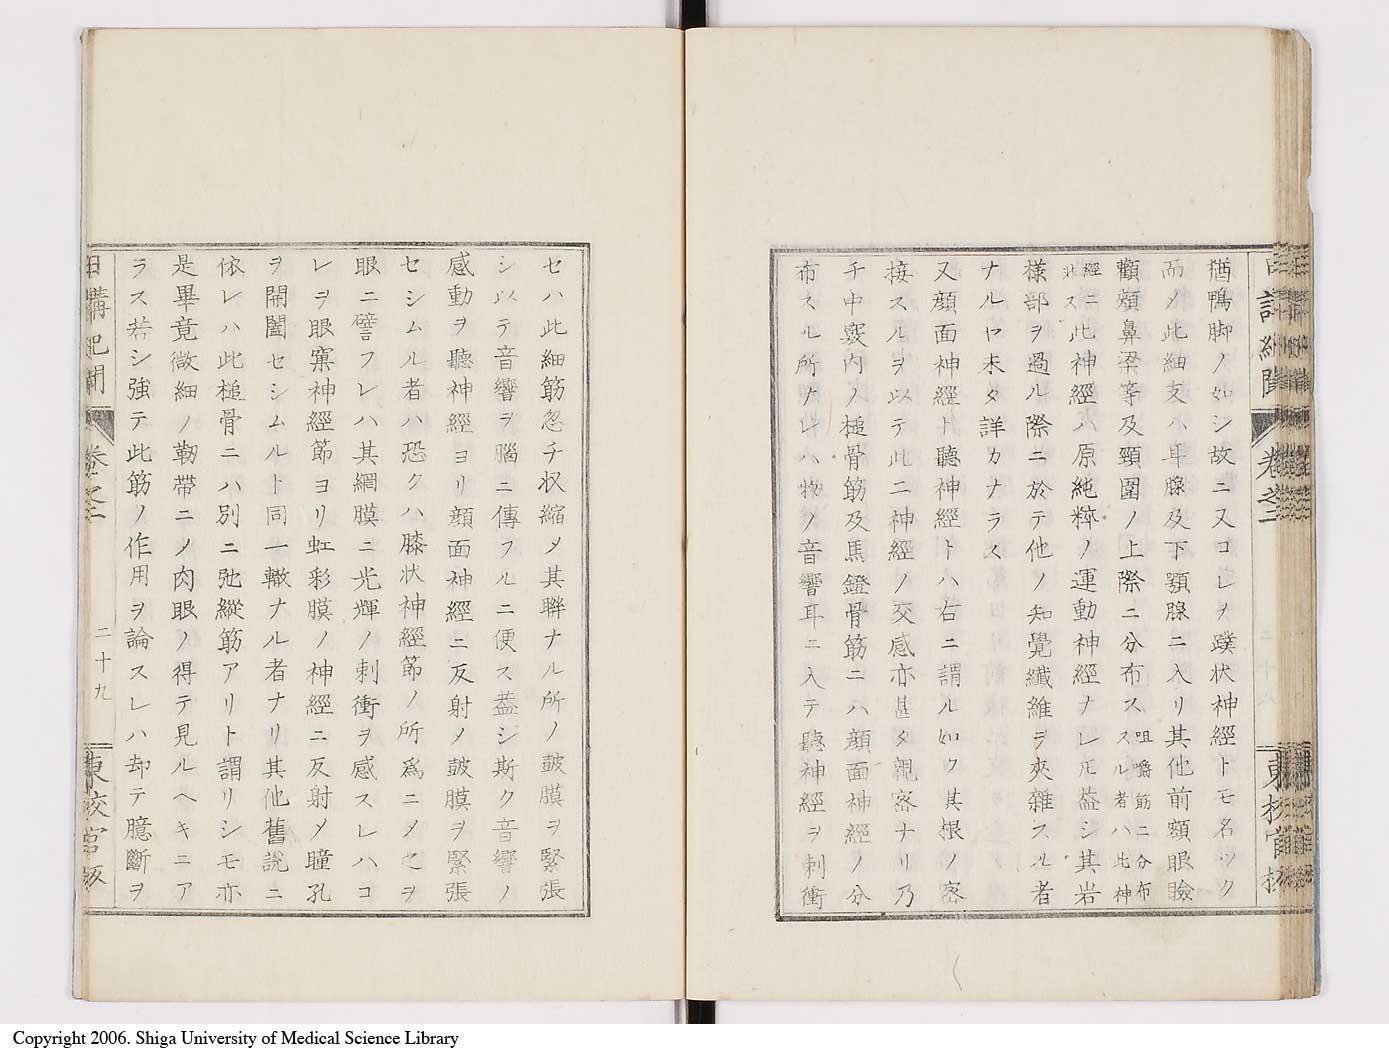 猶鴨脚ノ如シ故ニ又コレヲ蹼状神經トモ名ツク
而メ此細支ハ耳腺及下顎腺ニ入リ其他前額眼瞼
顴頰鼻梁等及頸圍ノ上際ニ分布ス咀嚼筋ニ分布スル者ハ此神
經ニ非ス此神經ハ原純粹ノ運動神經ナレ𪜈蓋シ其岩
樣部ヲ過ル際ニ於テ他ノ知覺纖維ヲ夾雜スル者
ナルヤ未タ詳カナラス
又顔面神經ト聽神經トハ右ニ謂ル如ク其根ノ密
接スルヲ以テ此二神經ノ交感亦甚タ親密ナリ乃
チ中竅内ノ槌骨筋及馬鐙骨筋ニハ顔面神經ノ分
布スル所ナレハ物ノ音響耳ニ入テ聽神經ヲ刺衝
卷之二
セハ此細筋忽チ収縮メ其聯ナル所ノ皷膜ヲ緊張
シ以テ音響ヲ腦ニ傳フルニ便ス蓋シ斯ク音響ノ
感動ヲ聽神經ヨリ顔面神經ニ反射メ皷膜ヲ緊張
セシムル者ハ恐クハ膝状神經節ノ所爲ニメ之ヲ
眼ニ譬フレハ其網膜ニ光輝ノ刺衝ヲ感スレハコ
レヲ眼窠神經節ヨリ虹彩膜ノ神經ニ反射メ瞳孔
ヲ開闔セシムルト同一轍ナル者ナリ其他舊説ニ
依レハ此槌骨ニハ別ニ弛縱筋アリト謂リシモ亦
是畢竟微細ノ靭帶ニノ肉眼ノ得テ見ルヘキニア
ラス若シ強テ此筋ノ作用ヲ論スレハ却テ臆斷ヲ
日講記聞 卷之二 二十九 東校官版
Copyright 2006. Shiga University of Medical Science Library